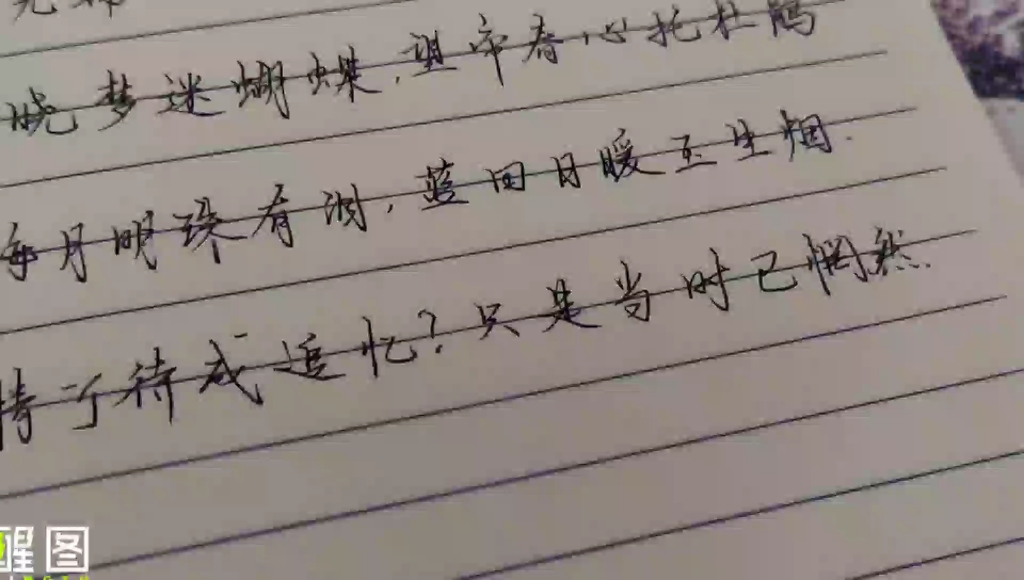 晓梦迷蝴蝶,望帝春心托杜鹃
海月明珠有泪,蓝田日暖玉生烟.
情可待成追忆?只是当时已惘然.
醒图